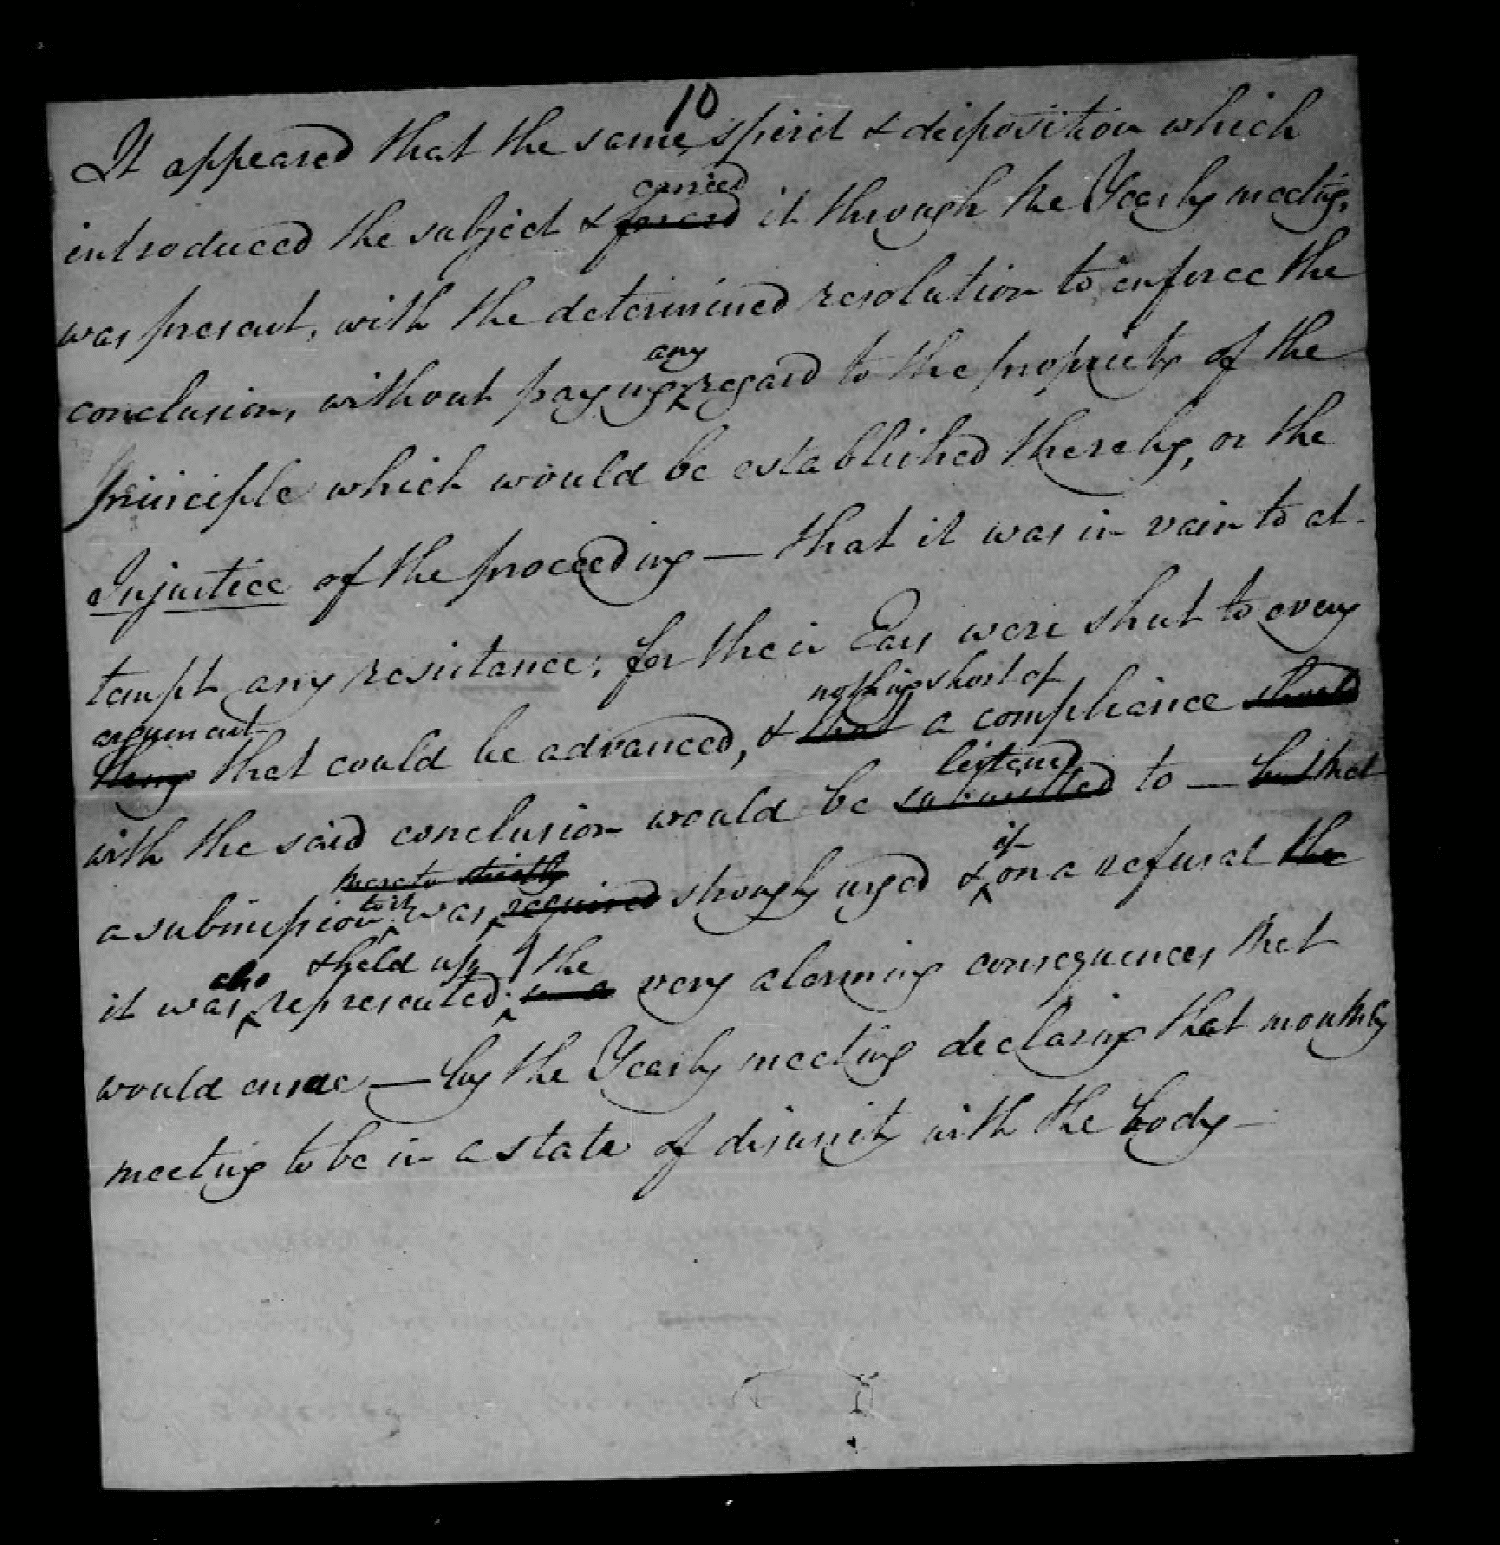 10
It appeared that the same spirit & disposition which
carried
introduced the subject & forced it through the Yearly meeting,
was present, with the determined resolution to enforce the
any
conclusion, without paying regard to the propriety of the
Principle which would be established thereby, or the
Injustice of the proceeding — that it was in vain to at-
tempt any resistance, for their Ears were shut to every
argument nothing short of
thing that could be advanced, & that a compliance should
listened
with the said conclusion would be submitted to — but that
it
a submission to it was required strongly urged & on a refusal the
also & held up the
it was represented in a very alarming consequences that
would ensue — by the Yearly meeting declaring that monthly
meeting to be in a state of disunity with the body —